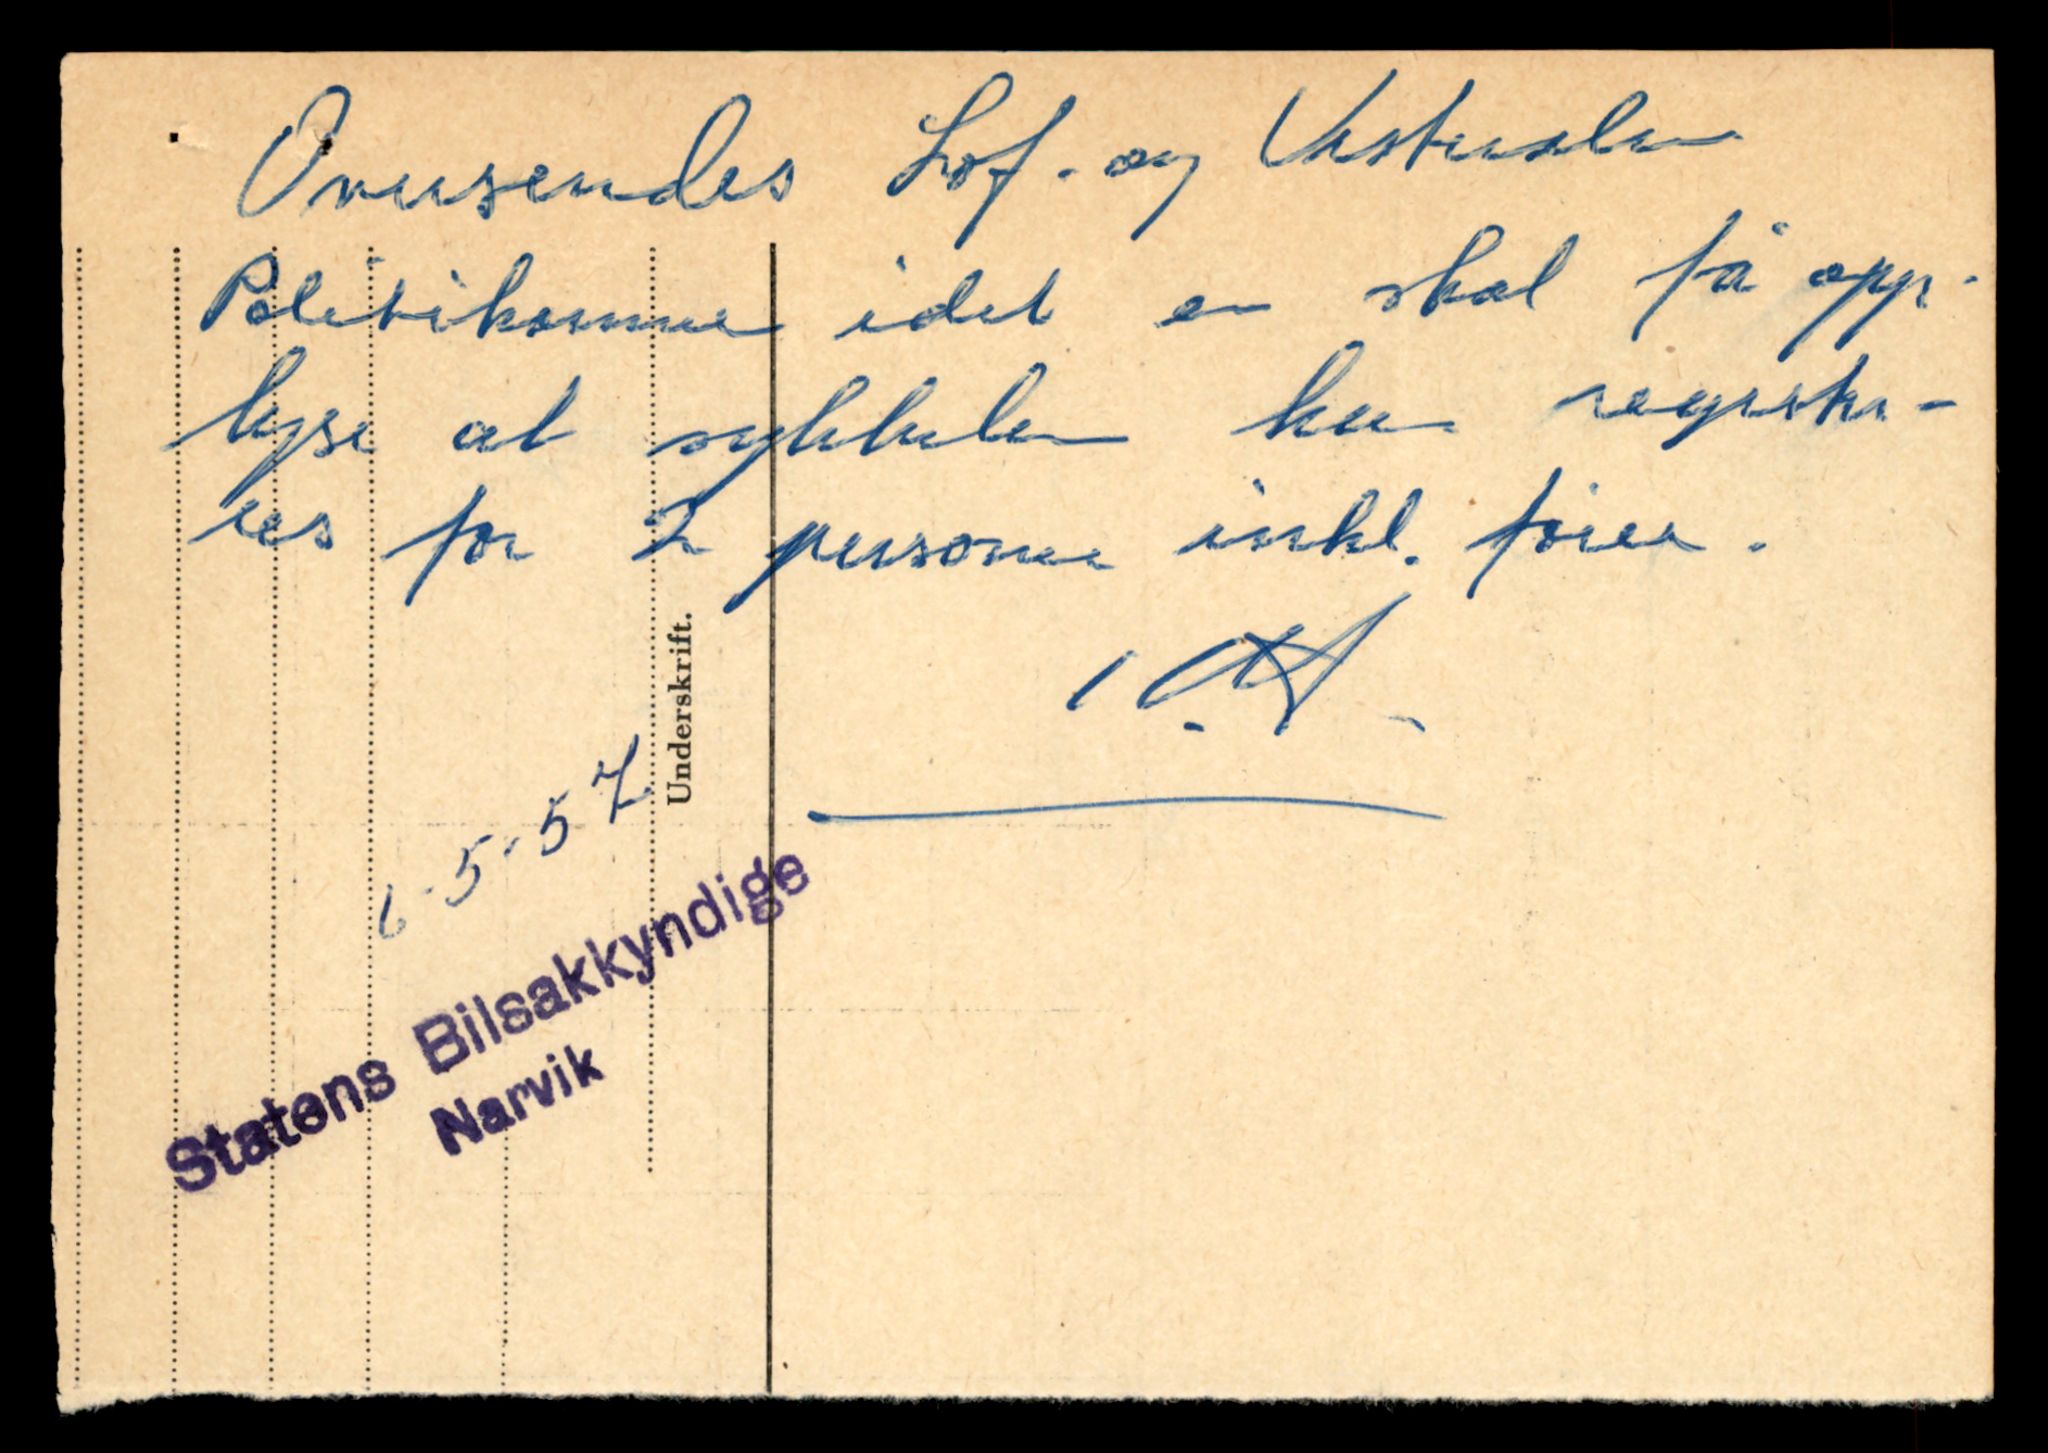 Oversendes Lof. og Vesterålen
Politikammer idet en skal få opp-
lyse at sykkelen kan registre-
res for 2 personer inkl. fører.
Underskrift.
6-5-57
Statens Bilsakkyndige
Narvik